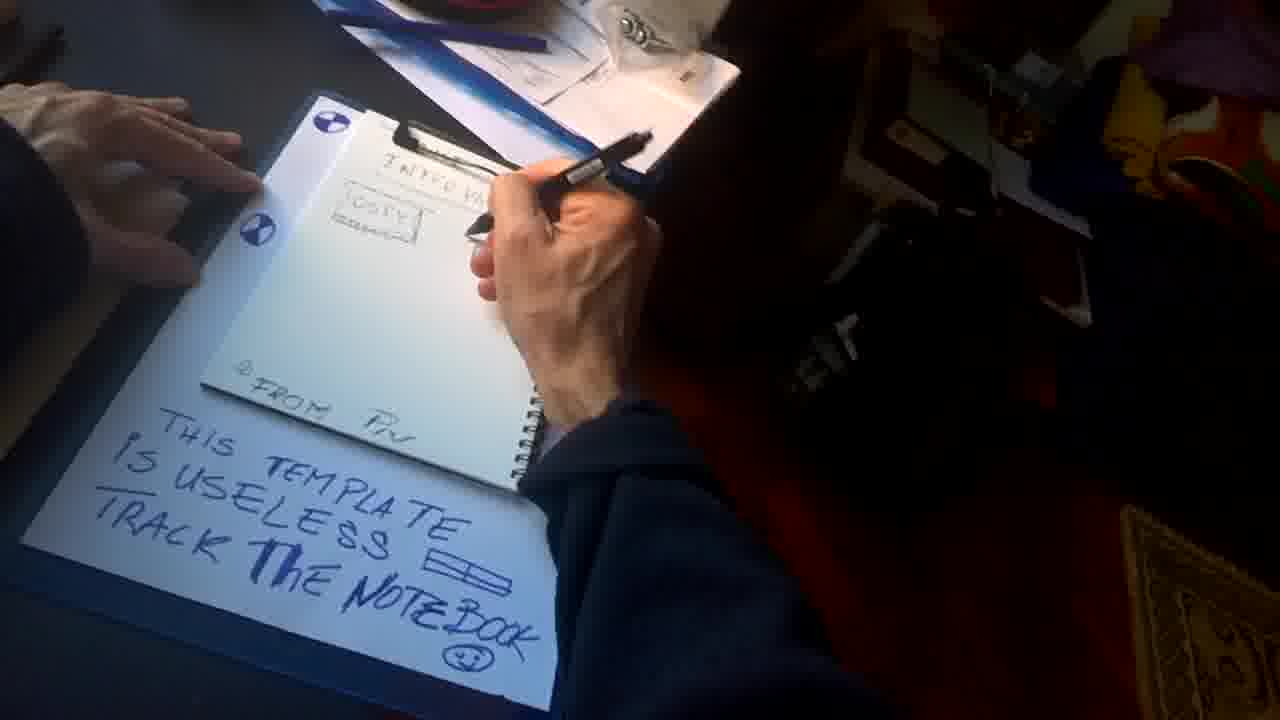 FROM PIN
THIS TEMPLATE
IS USELESS
TRACK THE NOTEBOOK